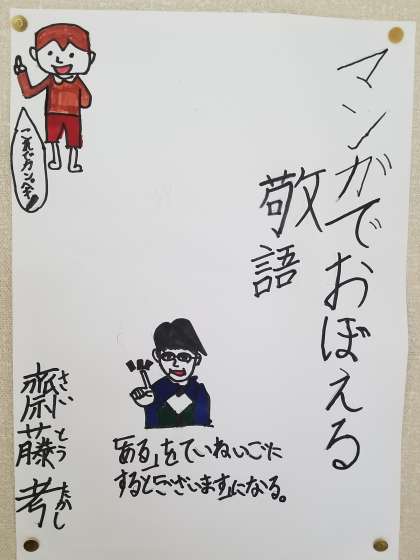 マンガでおぼえる
敬語
これでカンペキ!
「ある」をていねいごに
すると「ございます」になる。
齋藤 孝
さいとう たかし